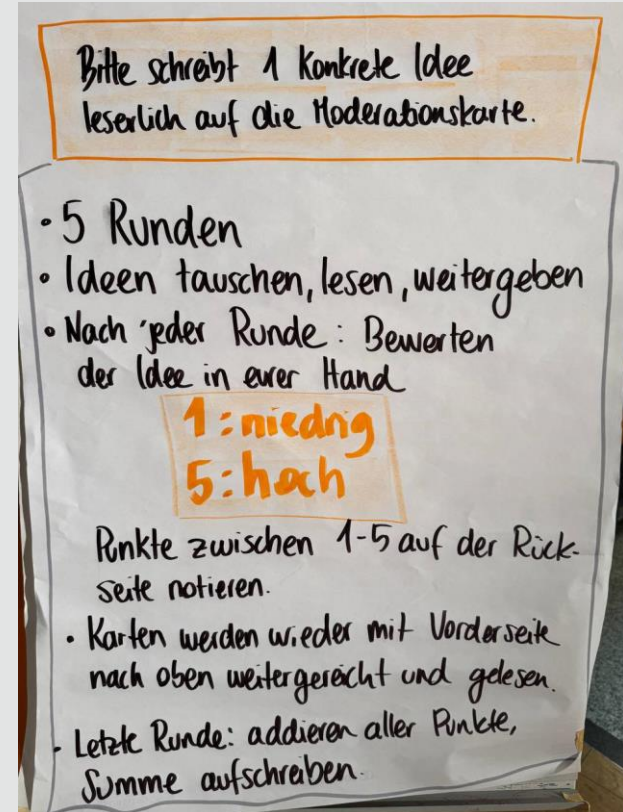 Bitte schreibt 1 konkrete Idee
leserlich auf die Moderationskarte.
• 5 Runden
• Ideen tauschen, lesen, weitergeben
• Nach jeder Runde: Bewerten
der Idee in eurer Hand
1: niedrig
5: hoch
Punkte zwischen 1-5 auf der Rück-
seite notieren.
• Karten werden wieder mit Vorderseite
nach oben weitergereicht und gelesen.
- Letzte Runde: addieren aller Punkte,
Summe aufschreiben.